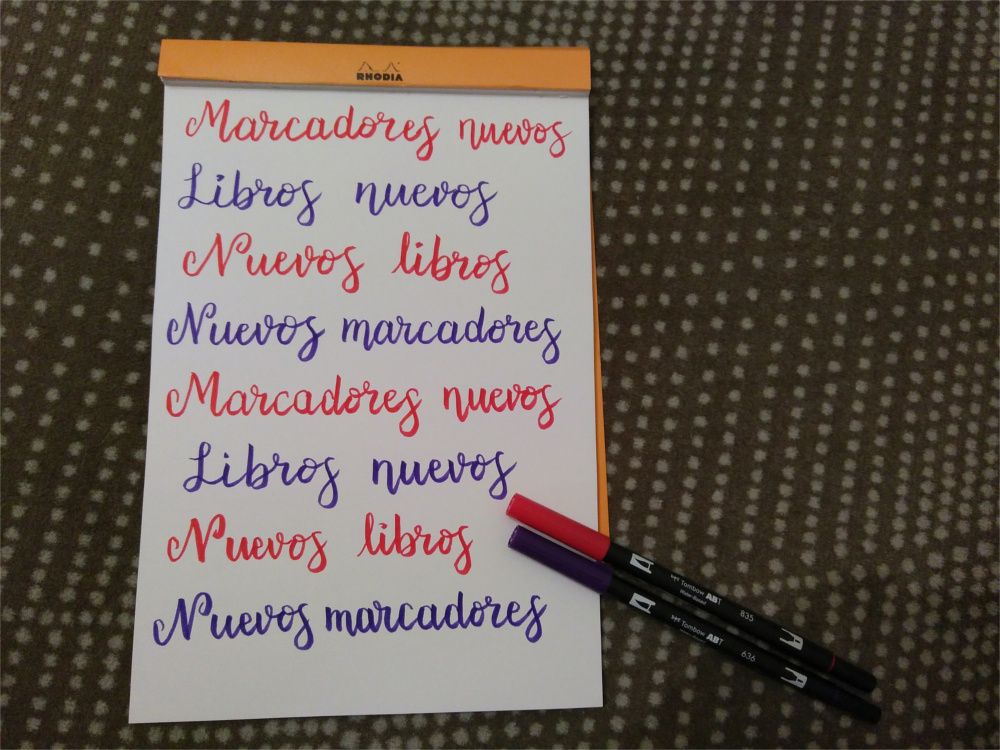 RHODIA
Marcadores nuevos
Libros nuevos
Nuevos libros
Nuevos marcadores
Marcadores nuevos
Libros nuevos
Nuevos libros
Nuevos marcadores
Tombow ABT
Water-Based
835
Tombow ABT
636